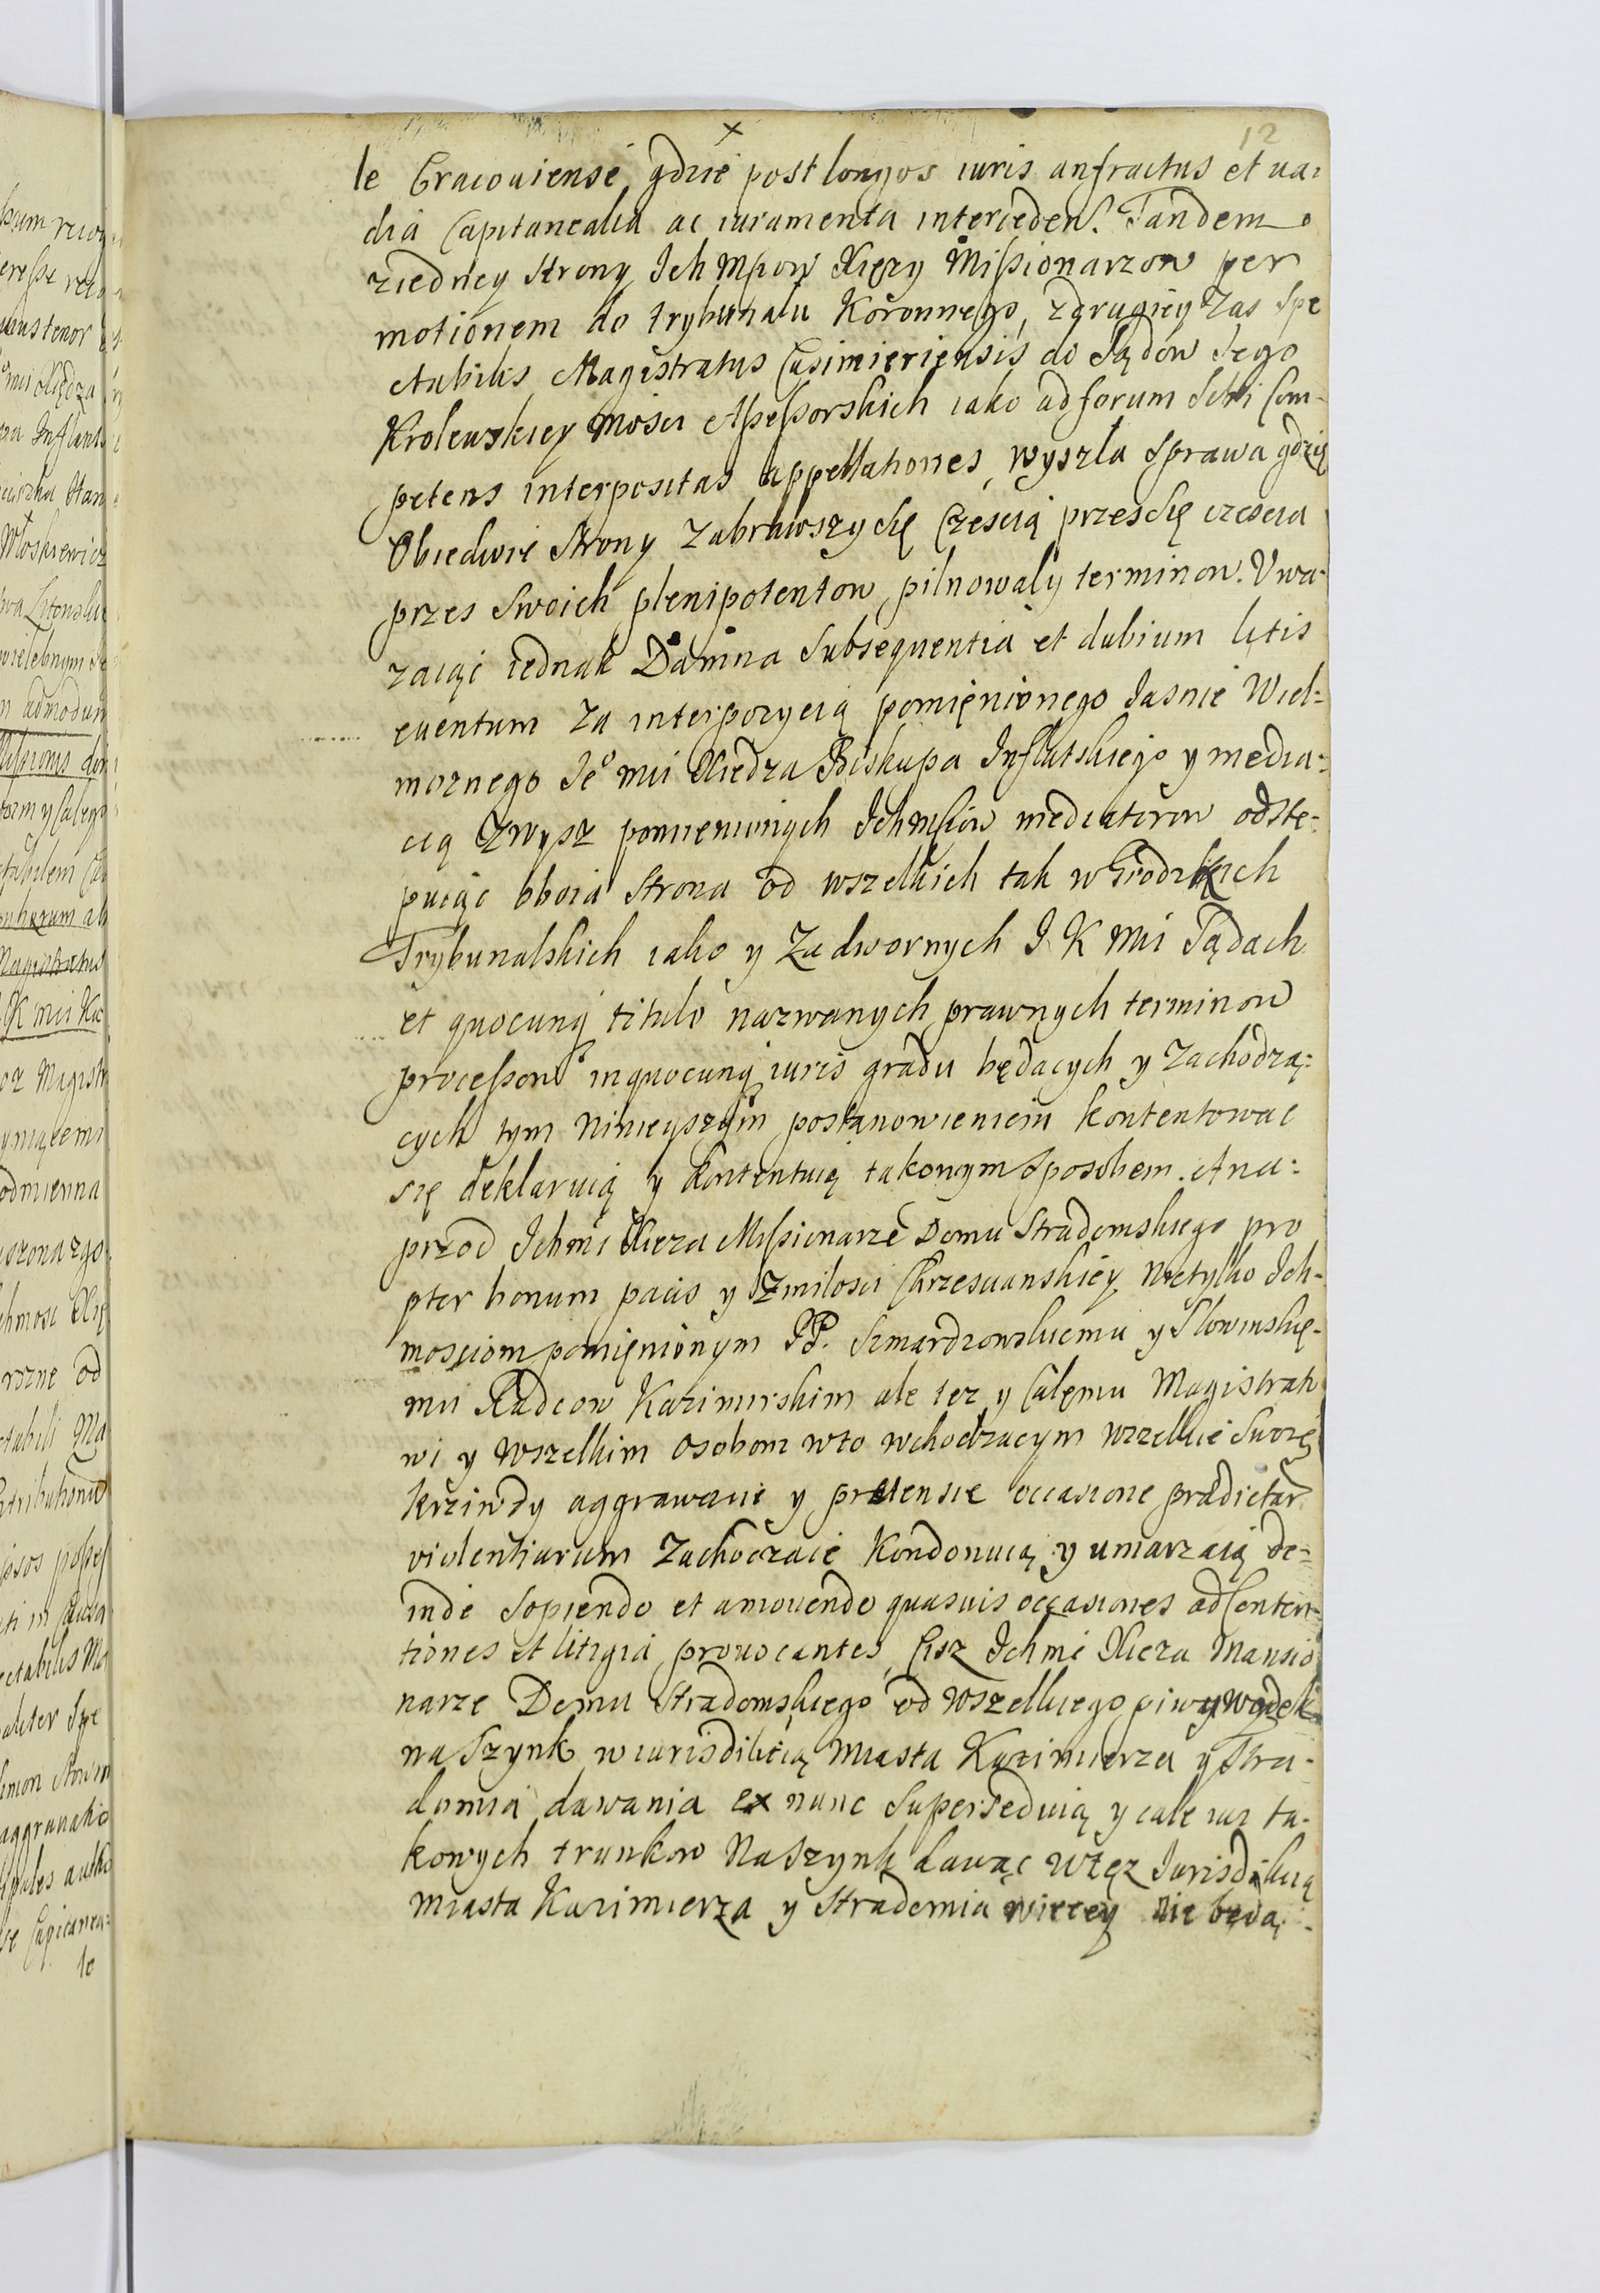 12
le Cracouiense gdzie post longos iuris anfractus et ua:
dia Capitanealia ac iuramenta interceden. Tandem
ziedney Strony Ich Mpow Xięzy Mißionarzow per
motionem do trybunału Koronnego, zdrugiey zas Spe
ctabilis Magistratus Casimiriensis do Sądow Jego
Krolewskiey Mosci Aßeßorskich iako ad forum Com-
petens interpositas appellationes, wyszła Sprawa gdzie
Obiedwie Strony zabrawszy się Częscią przes się częscia
przes Swoich plenipotentow pilnowały terminow. Uwa-
zaiąc iednak Damna Subsequentia et dubium litis
euentum za interpozycią pomięnionego Jasnie Wiel-
moznego Jeo Mci Xiedza Biskupa Inflatskiego y media-
cią zwysz pomienionych Ichmsciow mediatorow odstę-
puiąc oboia Strona od wszelkich tak w Grodzkich
Trybunalskich iako y Zadwornych J K Mci Sądach
et quocunq titulo nazwanych prawnych terminow
proceßow inquocunq iuris gradu będacych y zachodzą:
cych tym ninieyszym postanowieniem kontentowac
się deklaruią y kontentuią takowym Sposobem. Ana:
przod Ichmci Xieza Mißionarze Domu Stradomskiego pro
pter bonum pacis y zmiłosci Chrzescianskiey nietylko Ich-
mosciom pomięnionym PP. Szmardzowskiemu y Słowinskie-
mu Radcow Kazimirskim ale tez y Całemu Magistratu
wi y wszelkim osobom wto wchodzacym wszelkie Swoie
krziwdy aggrawacie y pretensie occasione prædictar
violentiarum Zachodzace kondonuią y umarzaią de-
inde Sopiendo et amouendo quasuis occasiones ad Conten-
tiones et litigia prouocantes, Cisz Ichmci Xieza Mansio
narze Domu Stradomskiego od wszelkiego piwy wodek
na Szynk w iurisdikcią Miasta Kazimierza y Stra-
domia dawania ex nunc Superseduią y cale iuz ta-
kowych trunkow na Szynk dawac wtęz Iurisdikcią
miasta Kazimierza y Stradomia wiecey nie będą